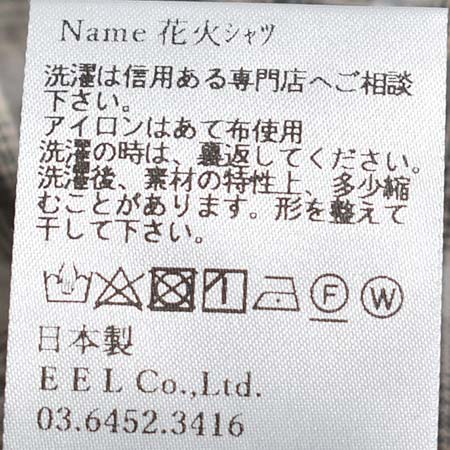 Name 花火シャツ
洗濯は信用ある専門店へご相談
下さい。
アイロンはあて布使用
洗濯の時は、裏返してください。
洗濯後、素材の特性上、多少縮
むことがあります。形を整えて
干して下さい。
F W
日本製
E E L Co.,Ltd.
03.6452.3416